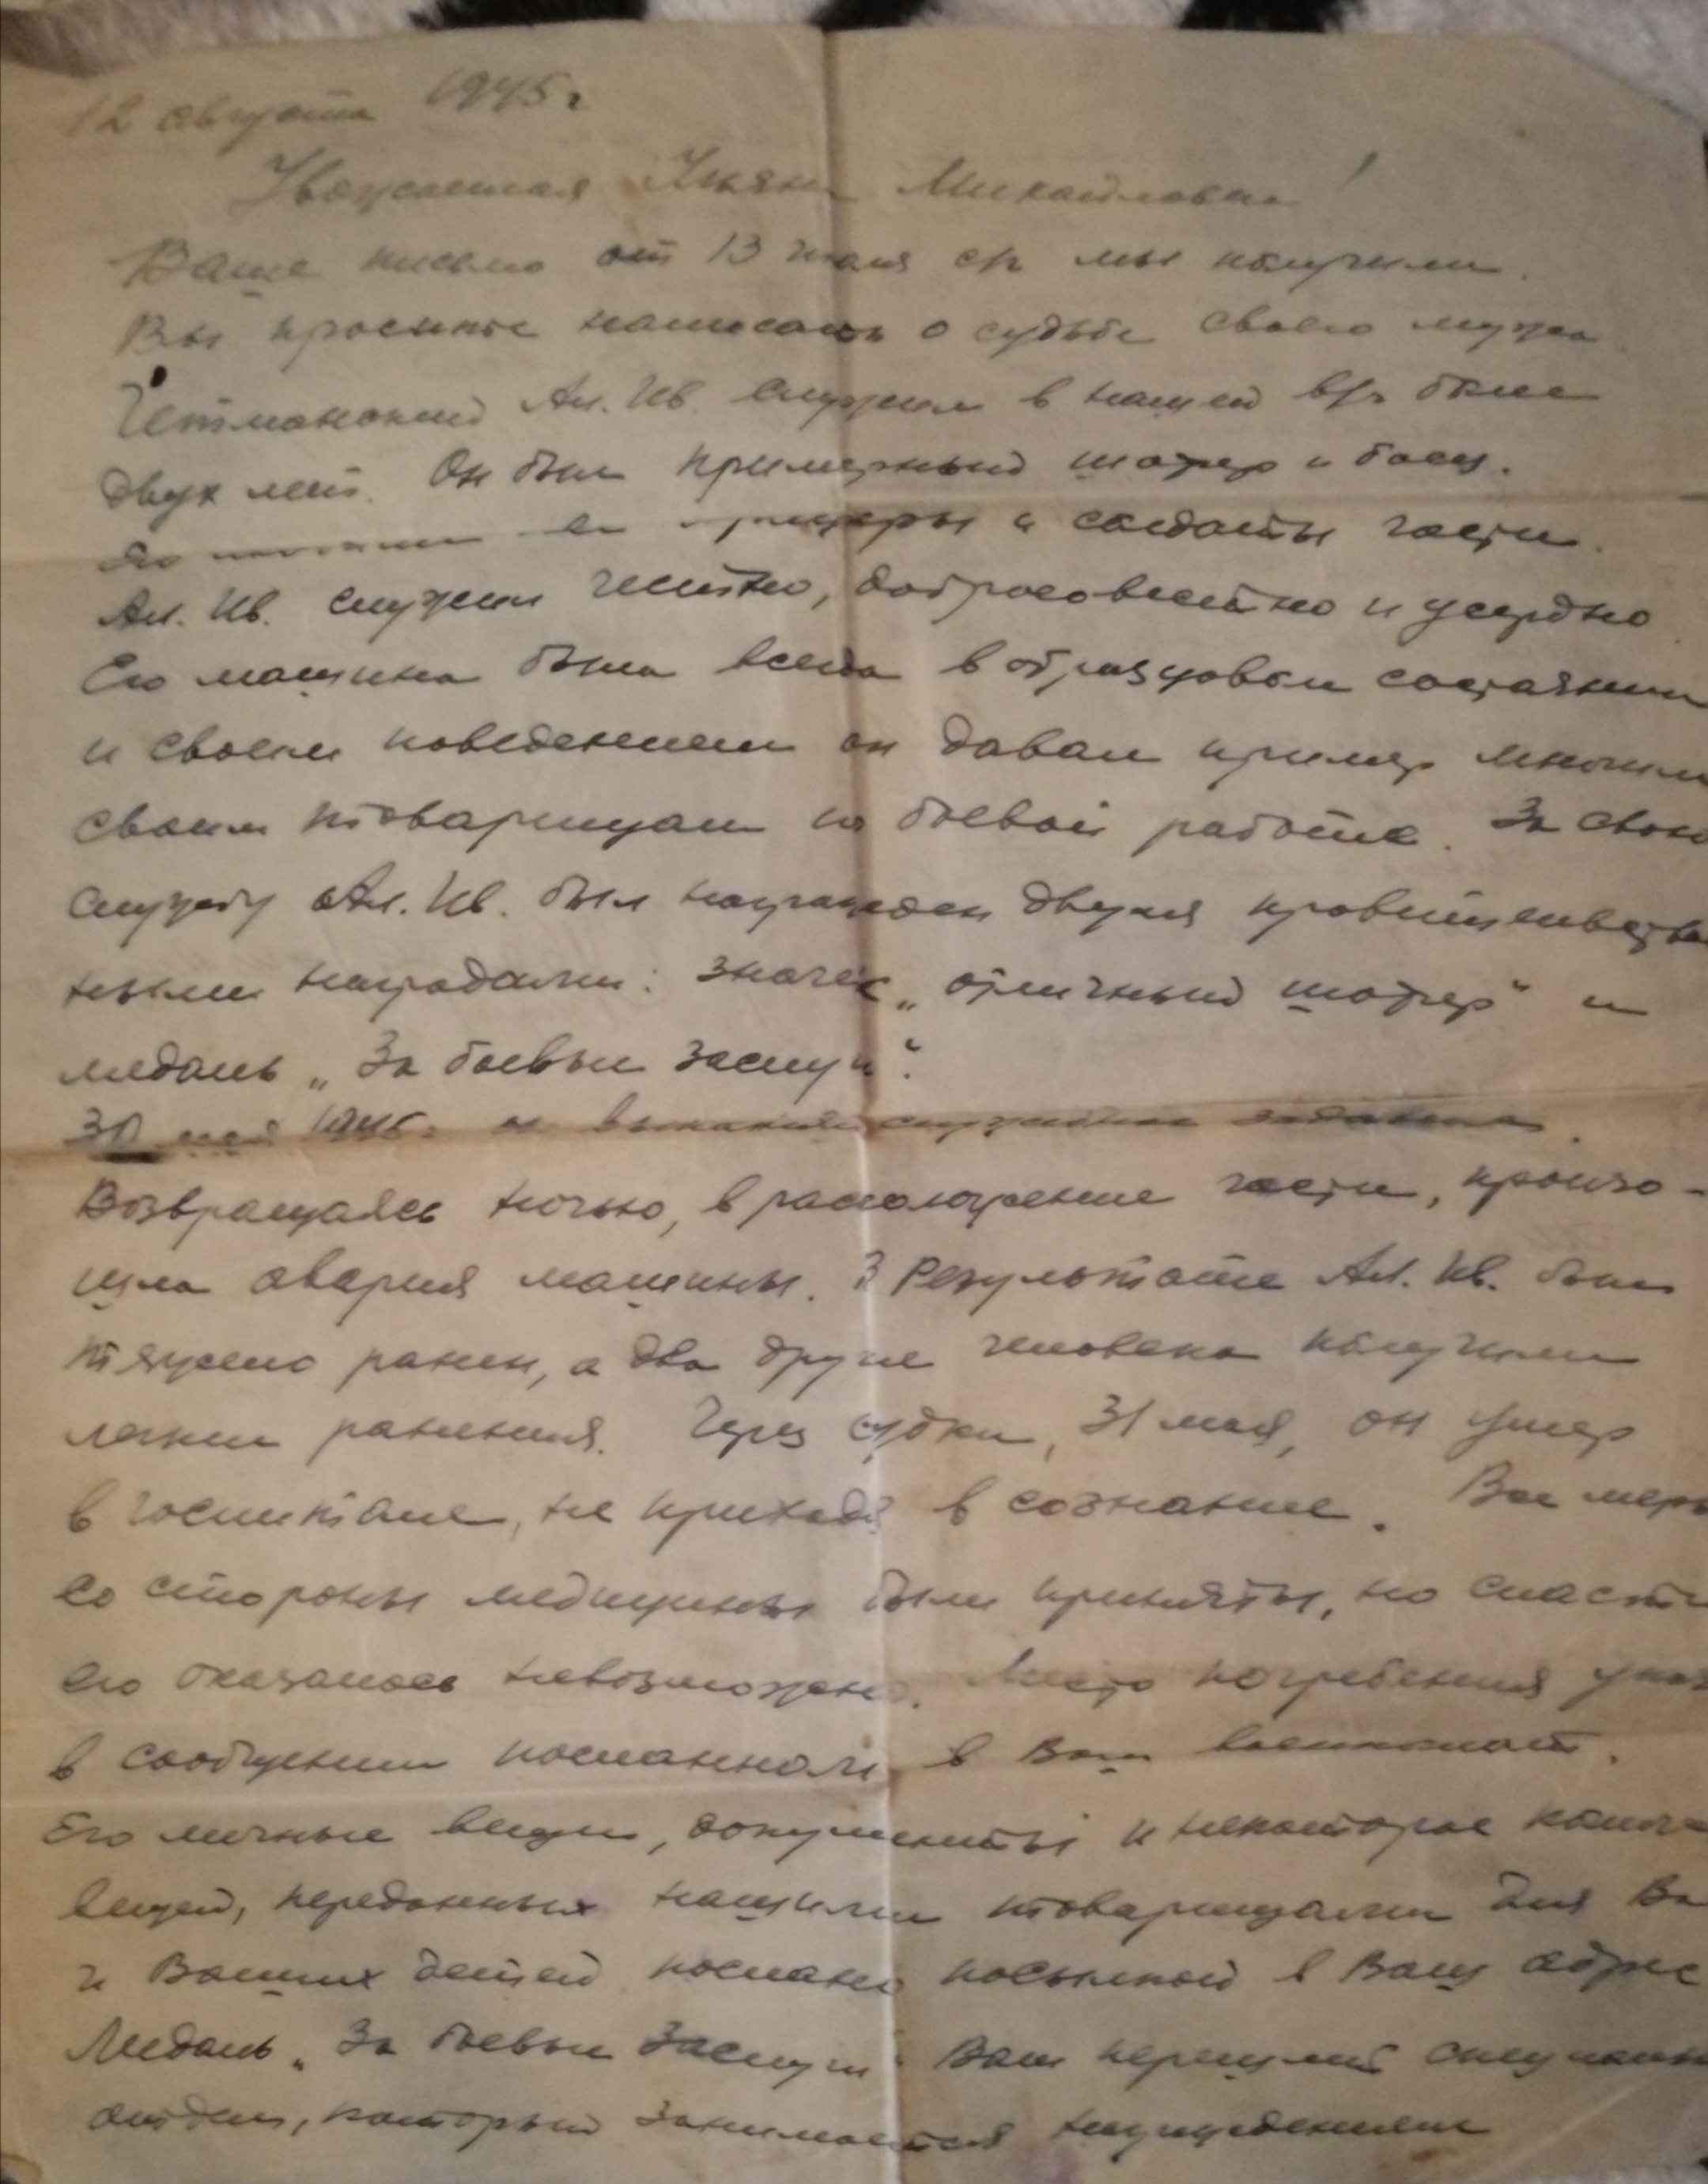 12 августа 1945 г
Уважаемая Ульяна Михайловна!
Ваше письмо от 13 июля с/г мы получили.
Вы просите написать о судьбе своего мужа.
Гетманский Ал. Ив. служил в нашей в/ч более
двух лет. Он был примерный шофер и боец.
Его офицеры и солдаты части.
Ал. Ив. служил честно, добросовестно и усердно.
Его машина была всегда в образцовом состоянии
и своим поведением он давал пример многим
своим товарищам по боевой работе. За свою
службу Ал. Ив. был награжден двумя правительствен
ными наградами: значек „отличный шофер" и
медаль „За боевые заслуги".
30 мая 1945г. он выполнял служебное задание.
Возвращаясь ночью, в расположение части, произо-
шла авария машины. В результате Ал. Ив. был
тяжело ранен, а два другие человека получили
легкие ранения. Через сутки, 31 мая, он умер
в госпитале, не приходя в сознание. Все меры
со стороны медицины были приняты, но спасти
его оказалось невозможно. Место погребения
в сообщении посланном в Ваш военкомат.
Его личные вещи, документы и некоторое
вещей, переданных нашими товарищами для
и Ваших детей послано посылкой в Ваш адрес
Медаль „За боевые заслуги" Вам перешлет
отдел, который занимается награждениями